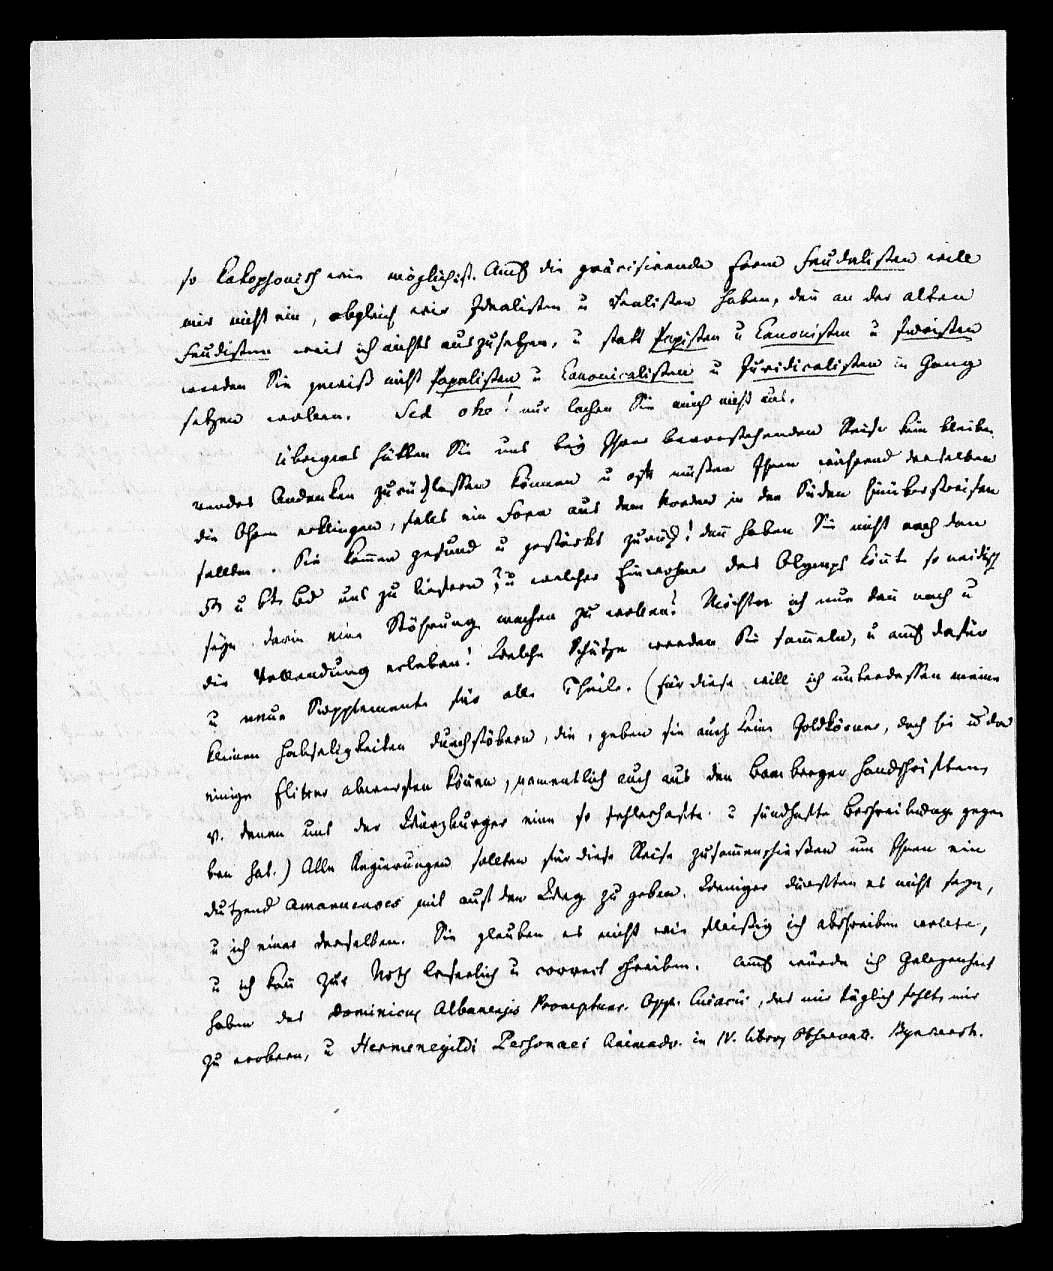 so kakophonisch wie möglichst. Auch die gräcisirende Form Feudalisten will
mir nicht ein, obgleich wir Idealisten u Realisten haben, den̅ an der alten
Feudisten weis ich nichts auszusetzen, u statt Papisten u Canonisten u Juristen
werden Sie gewiß nicht Papalisten u Canonicalisten u Juridicalisten in Gang
setzen wollen. Sed ohe! nur lachen Sie mich nicht aus.
Übrigens hätten Sie uns bey Ihrer bevorstehenden Reise kein bleiben
des Andenken zurücklassen können u oft müßen Ihnen während derselben
die Ohren erklingen, falls ein Ton aus dem Norden in den Süden hinüberstreifen
sollte. Sie kom̅en gesund u gestärkt zurück! dan̅ haben Sie nicht noch den
5t u 6t Bd uns zu liefern? u welcher Einwohner des Olymps kön̅te so neidisch
seyn darin eine Störung machen zu wollen? Möchte ich nur den noch u
die Vollendung erleben! Welche Schätze werden Sie sam̅eln, u auch dafür
u neue Supplemente für alle Theile. (Für diese will ich unterdessen meine
kleinen Habseligkeiten durchstöbern, die, geben sie auch keine Goldkörner, doch hie u da
einige Flitter abwerfen kön̅en, namentlich auch aus den Bamberger Handschriften,
v. denen uns der Würzburger eine so fehlerhafte u sündhafte Beschreibung gege
ben hat.) Alle Regierungen sollten für diese Reise zusam̅enschießen um Ihnen ein
Dutzend amanuenses mit auf den Weg zu geben. Weniger dürften es nicht seyn,
u ich einer derselben. Sie glauben es nicht wie fleißig ich abschreiben wollte,
u ich kan̅ zur Noth leserlich u correct schreiben. Auch würde ich Gelegenheit
haben des Dominicus Albanensis Promptuar. Opp. Cuiacii, das mir täglich fehlt, mir
zu erobern, u Hermenegildi Personnei Animadv. in IV. libros Observatt. Bynkersh.